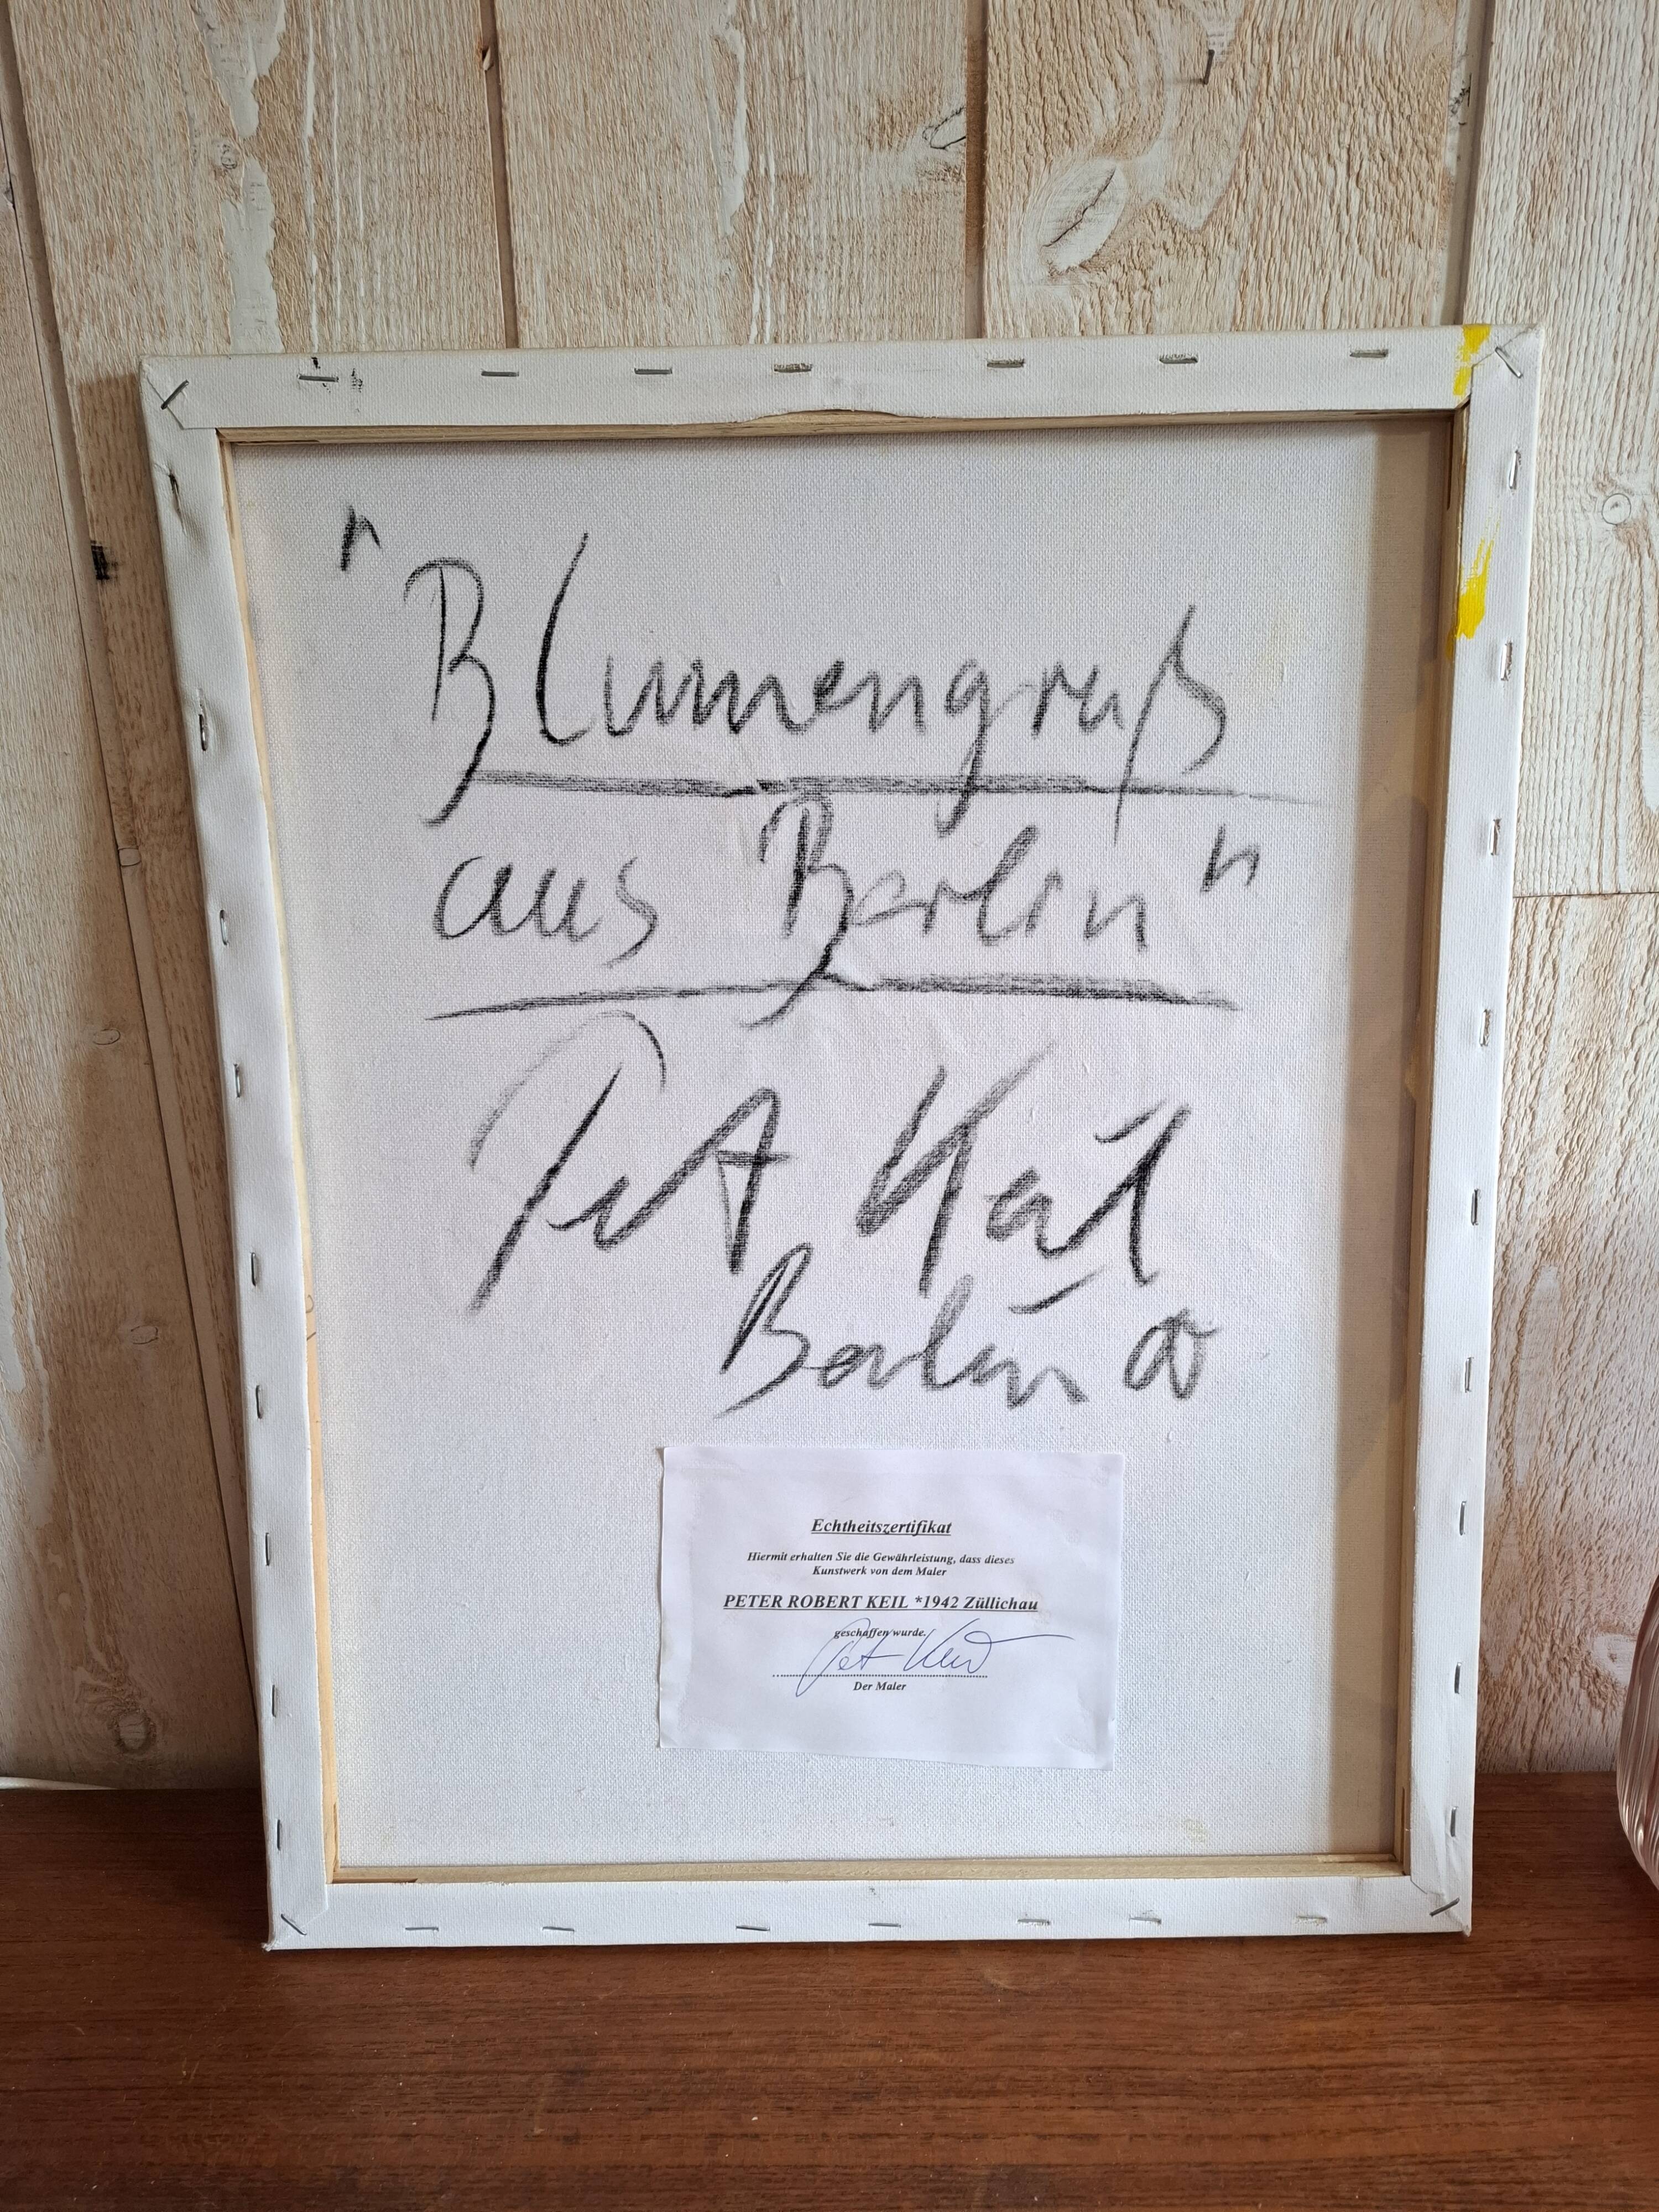 "Blumengruß
aus Berlin"
Pet Keil
Berlin
Echtheitszertifikat
Hiermit erhalten Sie die Gewährleistung, dass dieses
Kunstwerk von dem Maler
PETER ROBERT KEIL *1942 Züllichau
geschaffen wurde.
Pet Keil
Der Maler